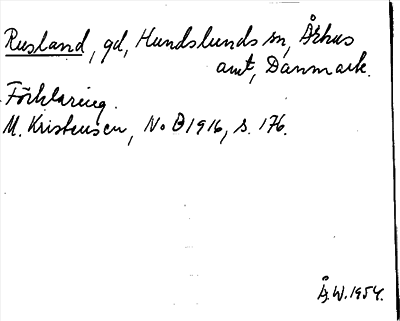 Rusland, gd, Hundslunds sn, Århus
amt, Danmark.
Förklaring.
M. Kristensen, NoB 1916, s. 176.
Å.W. 1954.